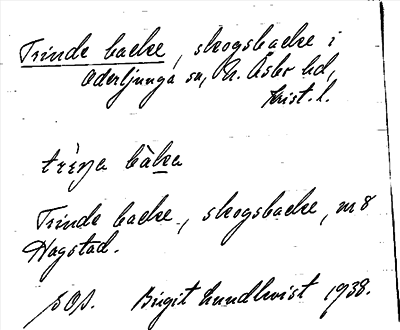 Trinde backe, skogsbacke i
Oderljunga sn, N. Åsbo hd,
Krist. l.
trìŋa bàka
Trinde backe, skogsbacke, m 8
Hagstad.
Birgit Lundkvist 1938.